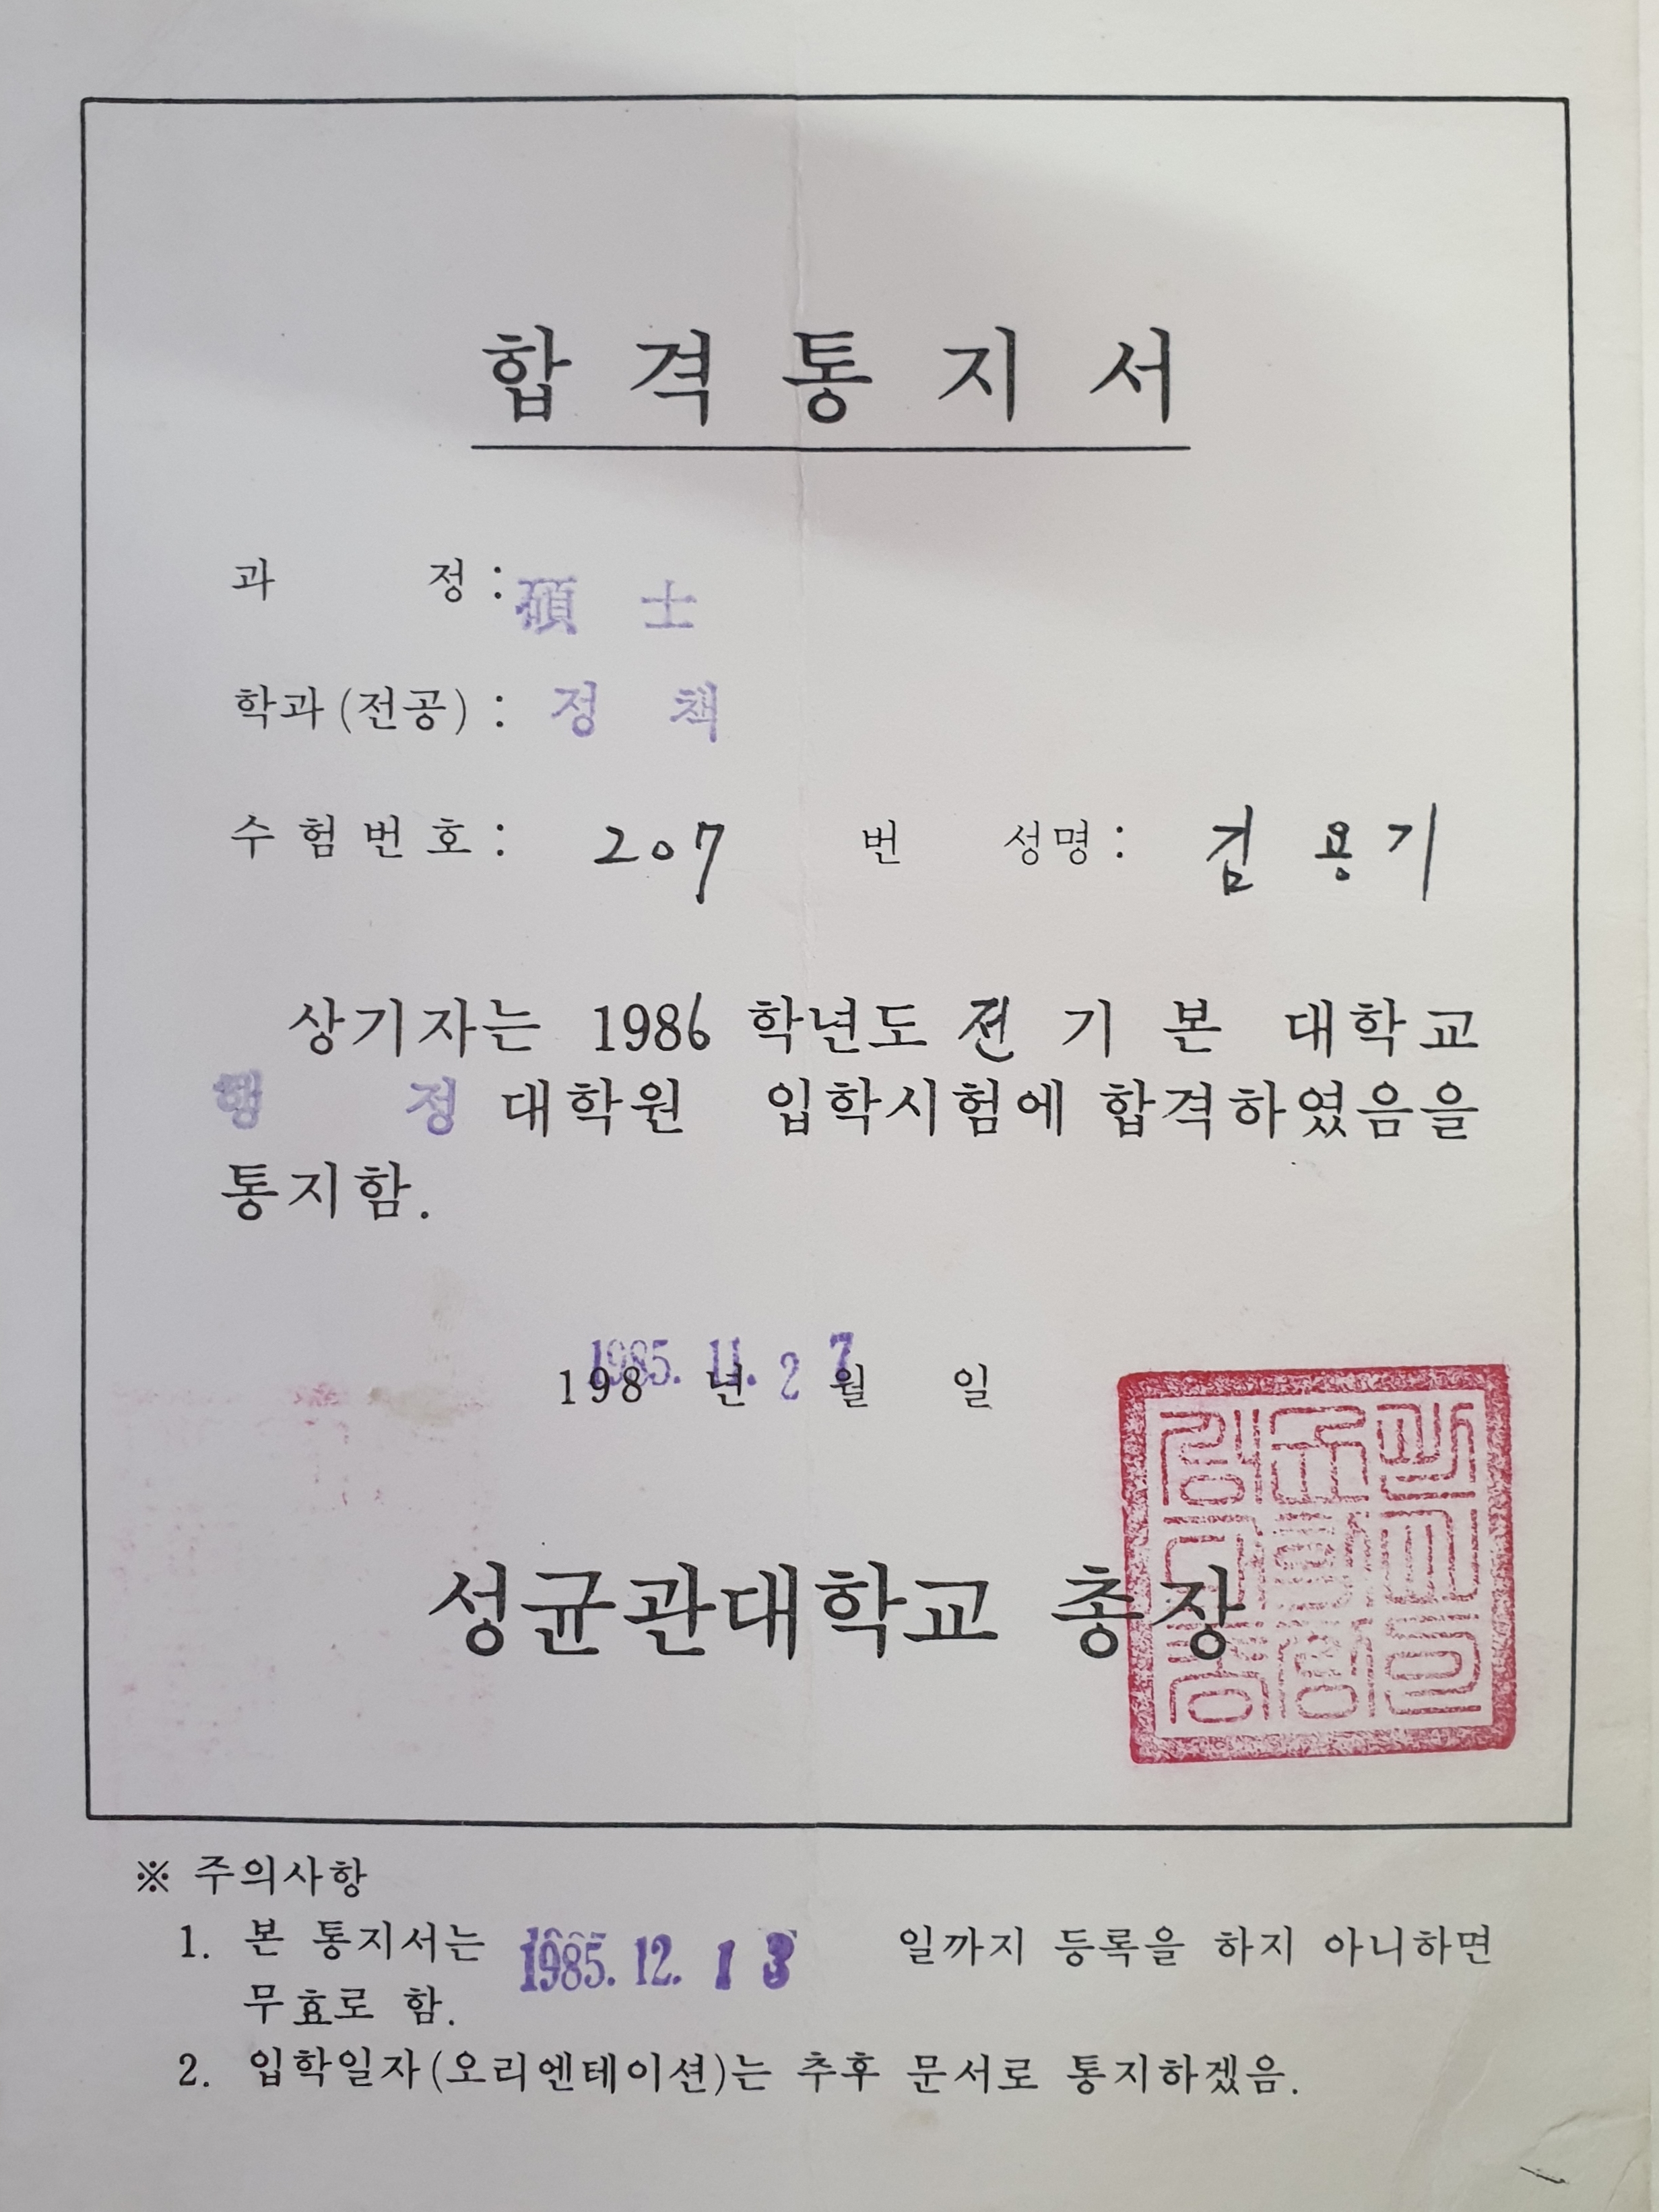 합격통지서
과 정 : 碩 士
학과(전공) : 정 책
수험번호 : 207 번 성명 : 김용기
상기자는 1986 학년도 전기 본 대학교
행 정 대학원 입학시험에 합격하였음을
통지함.
1985. 11. 27
198 년 월 일
성균관대학교 총장
※ 주의사항
1. 본 통지서는 1985. 12. 13 일까지 등록을 하지 아니하면
무효로 함.
2. 입학일자(오리엔테이션)는 추후 문서로 통지하겠음.